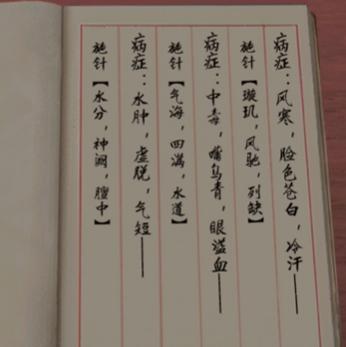 病症：风寒，脸色苍白，冷汗——
施针【璇玑，风驰，列缺】
病症：中毒，嘴乌青，眼溢血——
施针【气海，四满，水道】
病症：水肿，虚脱，气短——
施针【水分，神阙，膻中】